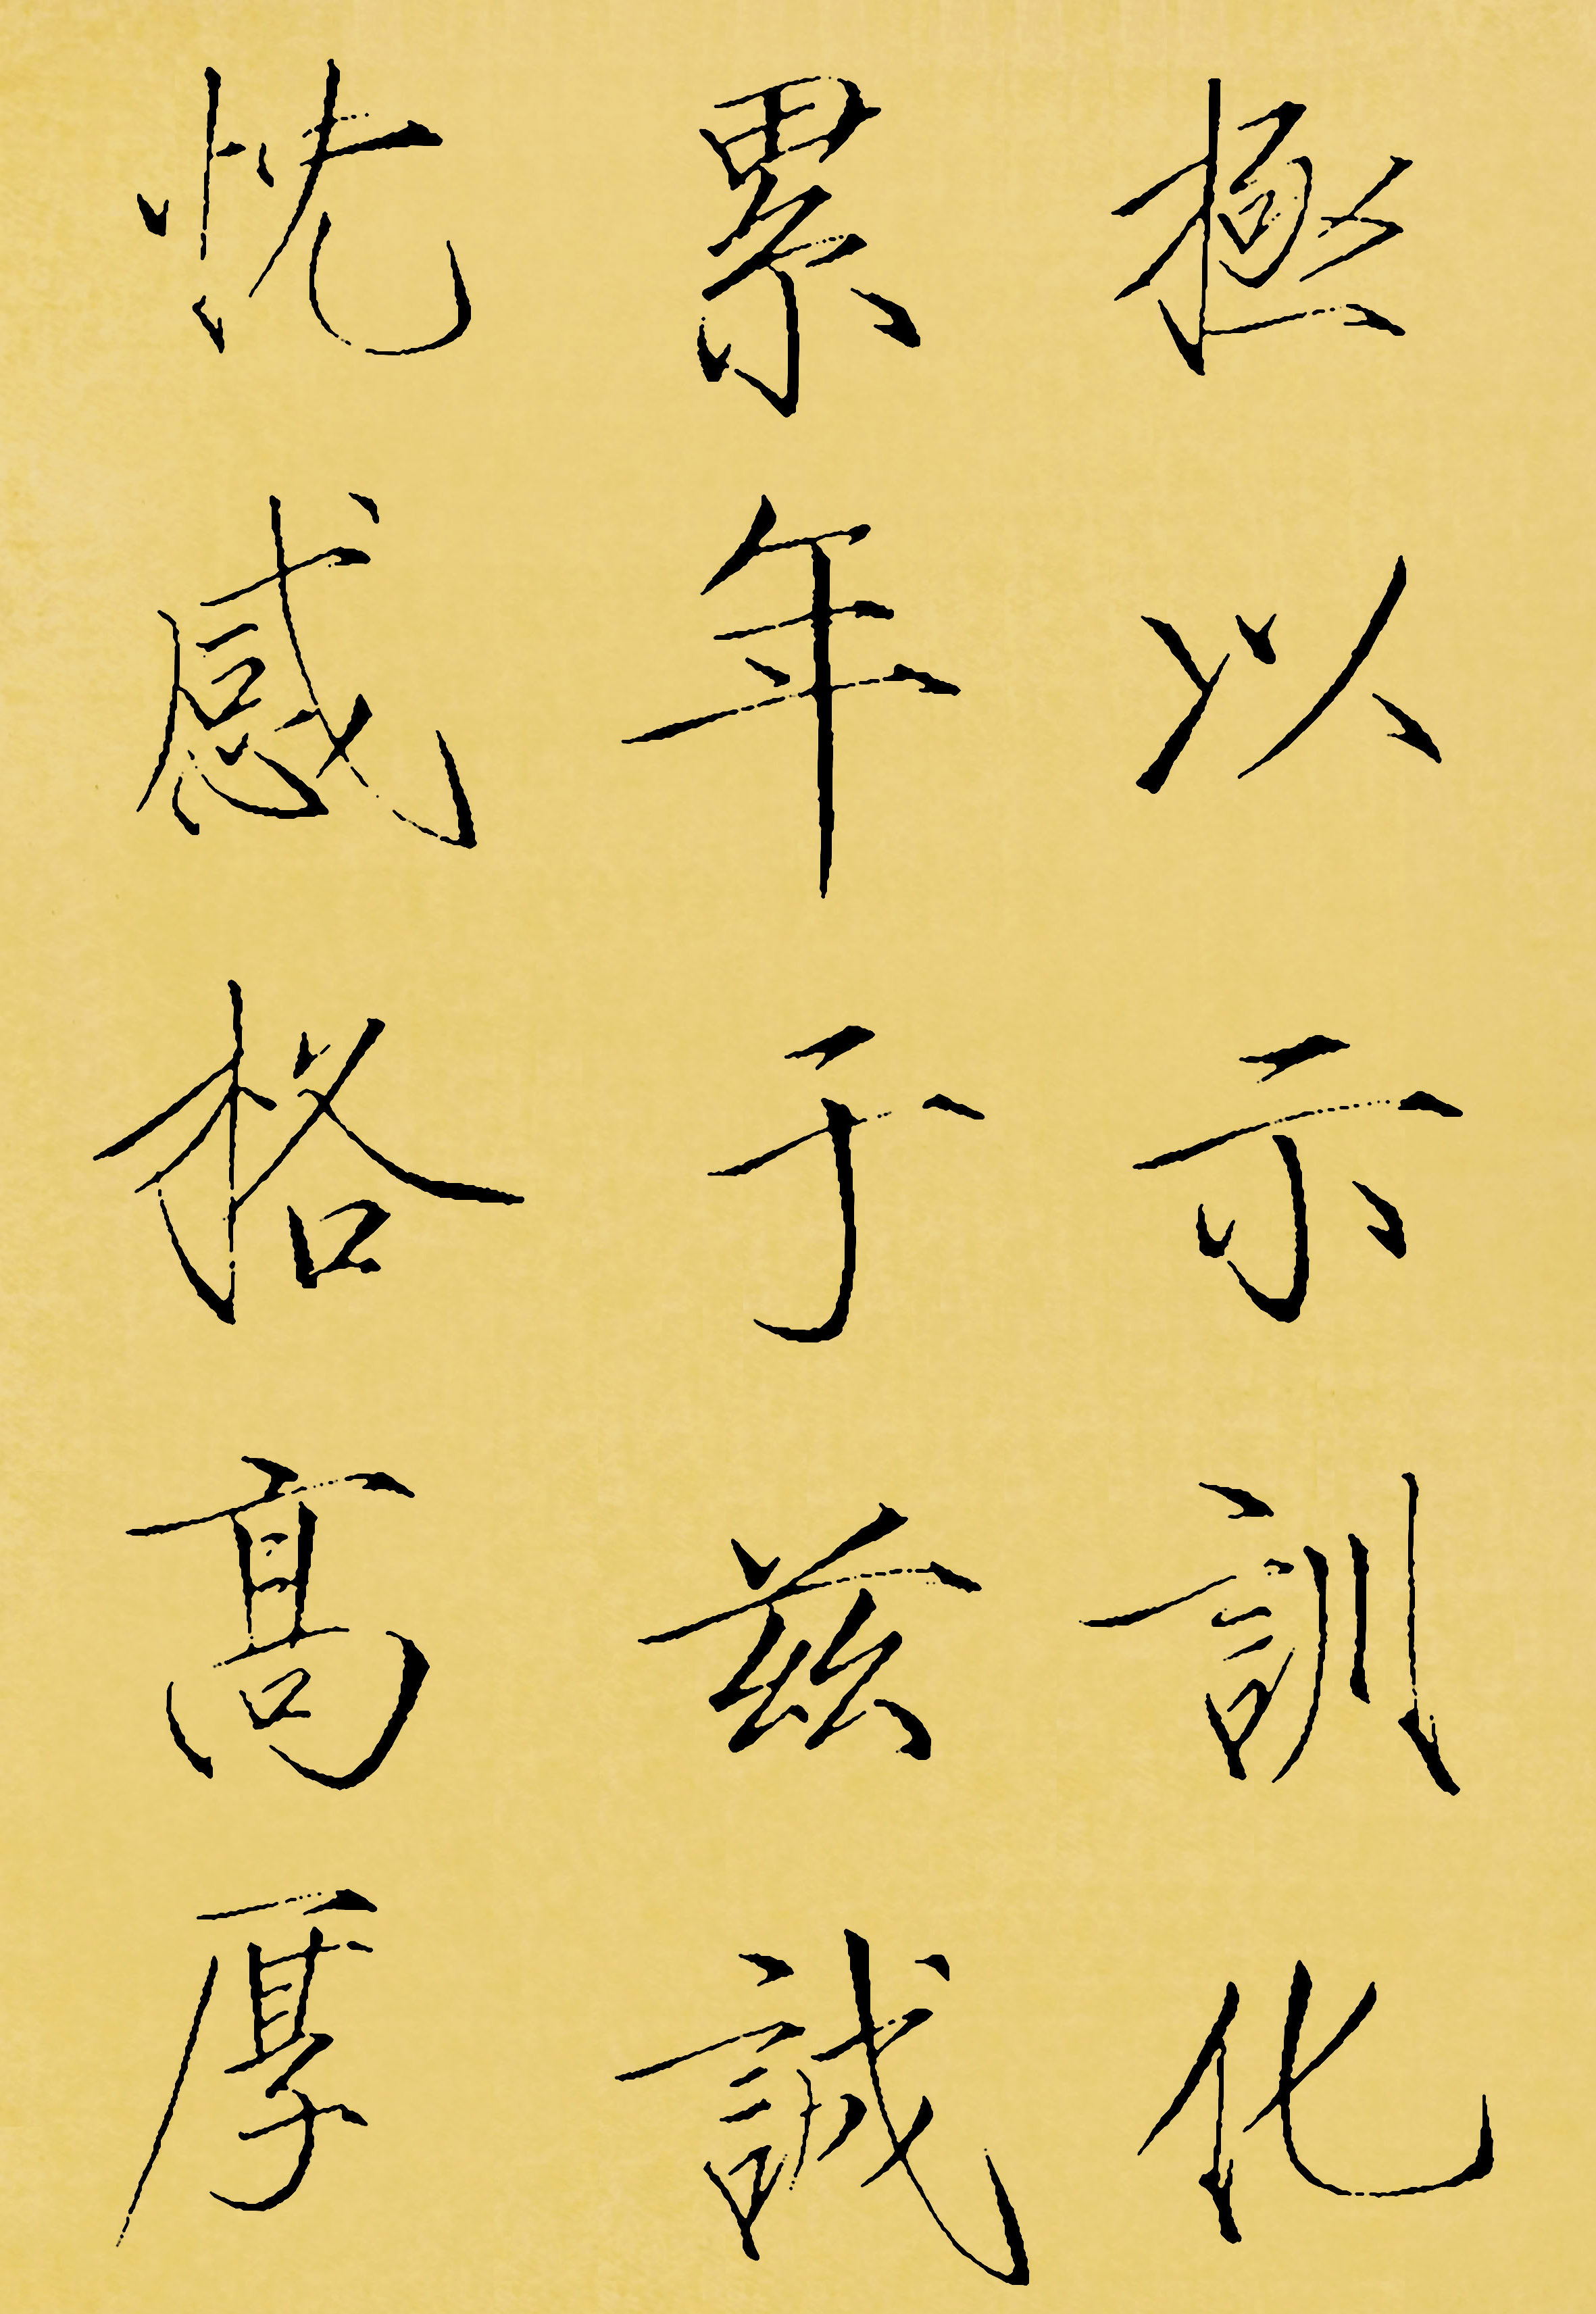 極以示訓化
累年于茲誠
忱感格高厚